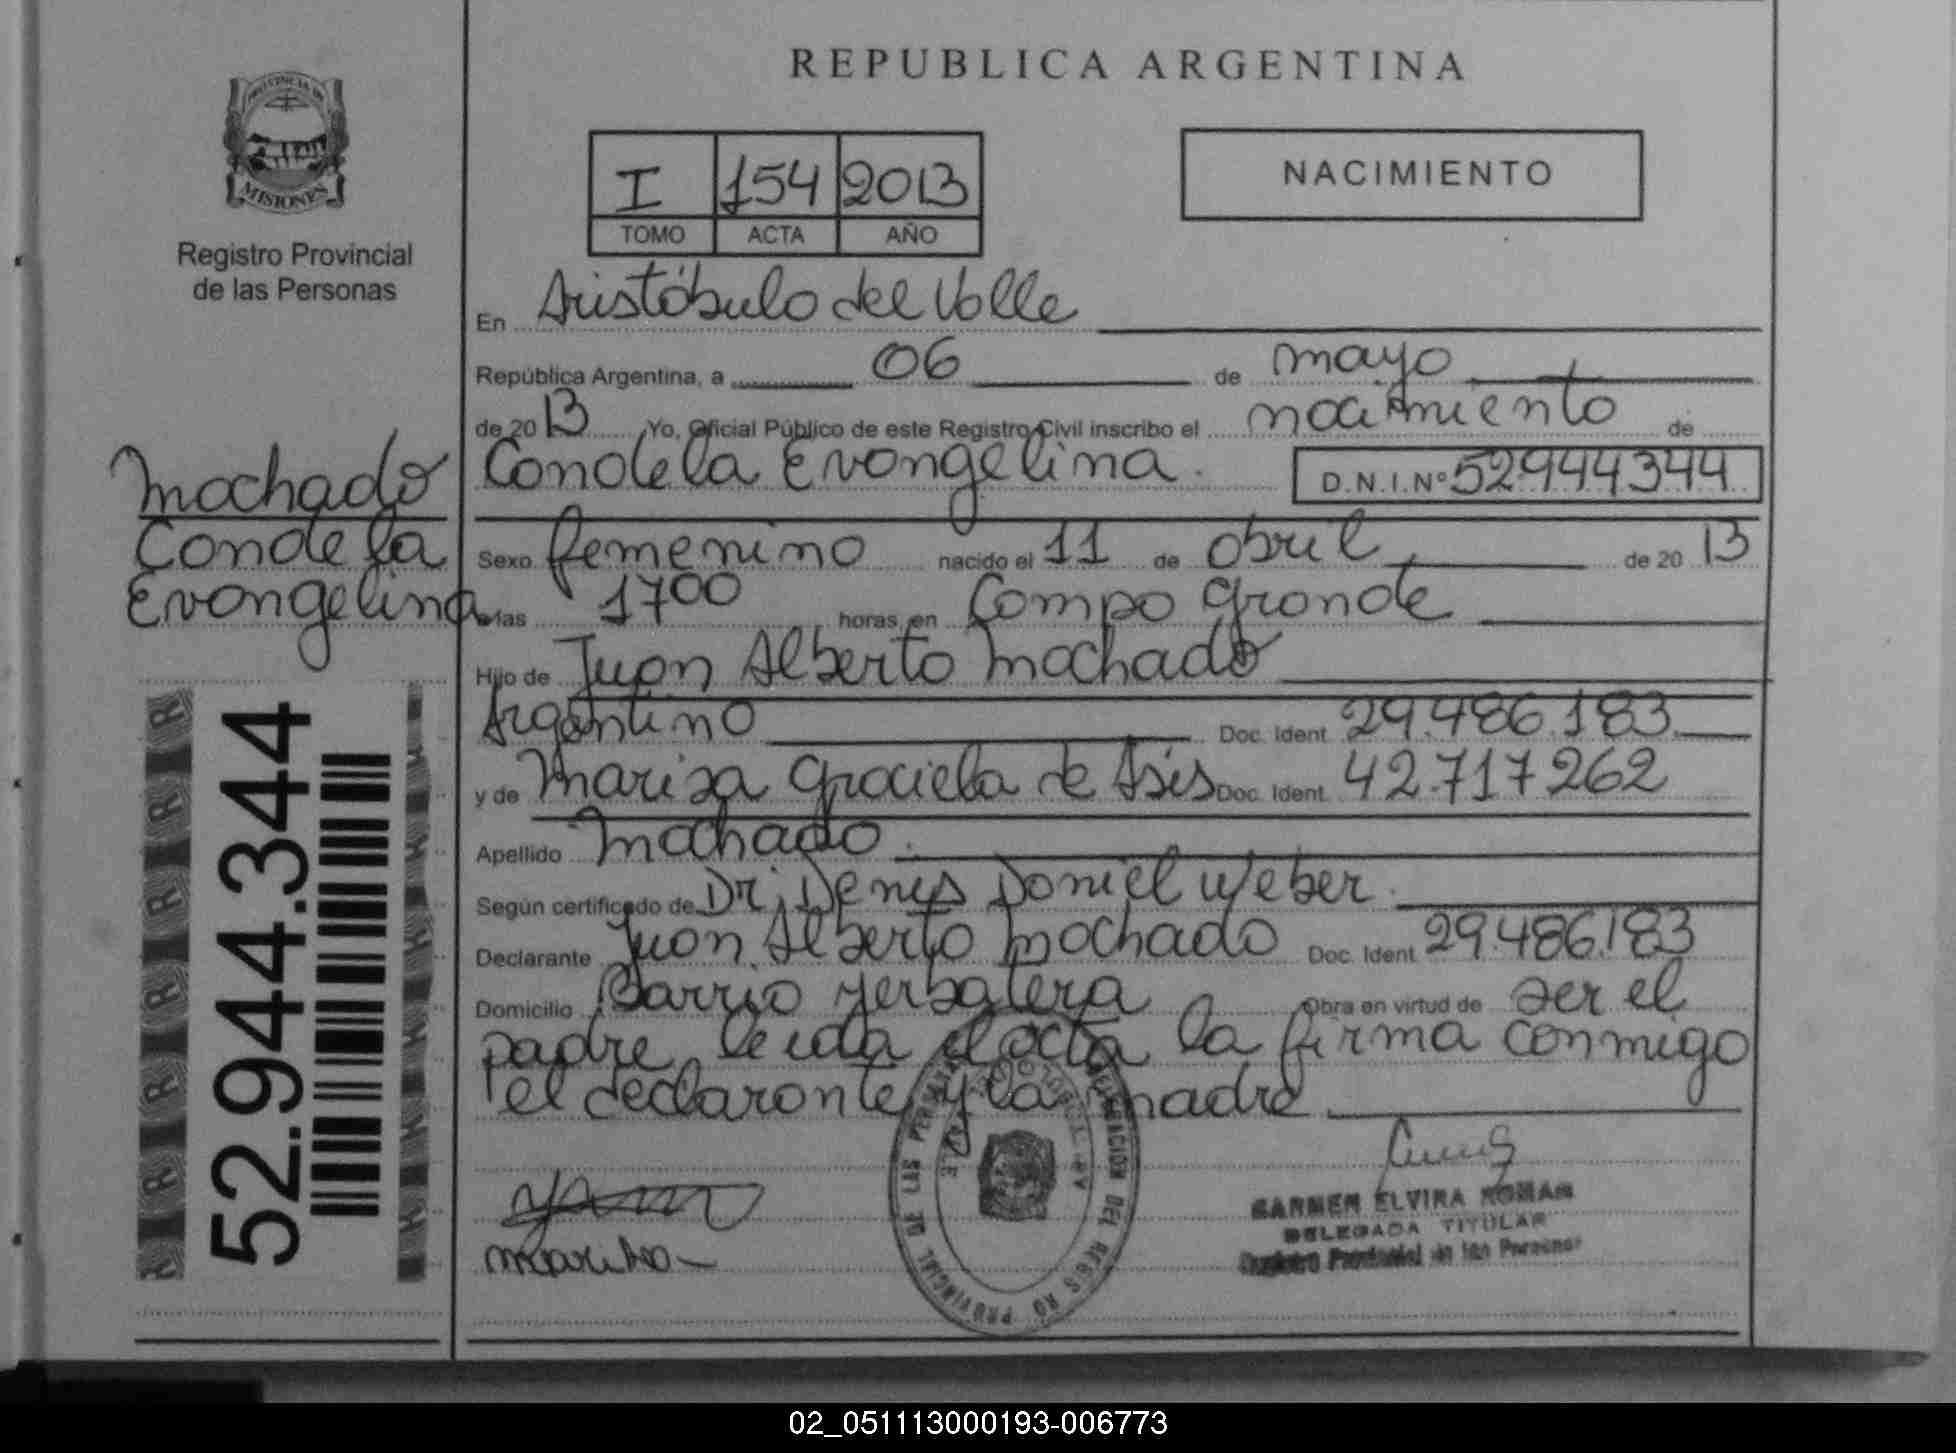 REPUBLICA ARGENTINA
PROVINCIA DE
MISIONES
Registro Provincial
de las Personas
I 154 2013
TOMO ACTA AÑO
NACIMIENTO
En Aristóbulo del Valle
República Argentina, a 06 de mayo
de 2013 Yo, Oficial Público de este Registro Civil inscribo el nacimiento de
Candela Evangelina. D.N.I.Nº 52944344
Sexo femenino nacido el 11 de abril de 2013
a las 1700 horas en Campo Grande
Hijo de Juan Alberto Machado
Argentino Doc. Ident. 29.486.183
y de Mariza Graciela de Asis Doc. Ident. 42.717262
Apellido Machado.
Según certificado de Dr. Denis Daniel Weber.
Declarante Juan Alberto Machado Doc. Ident. 29.486.183
Domicilio Barrio Yerbatera Obra en virtud de ser el
padre, leida el acta la firma conmigo
el declarante y la madre
Machado
Candela
Evangelina
52.944.344
CARMEN ELVIRA ROMAN
DELEGADA TITULAR
Registro Provincial de las Personas
02_051113000193-006773